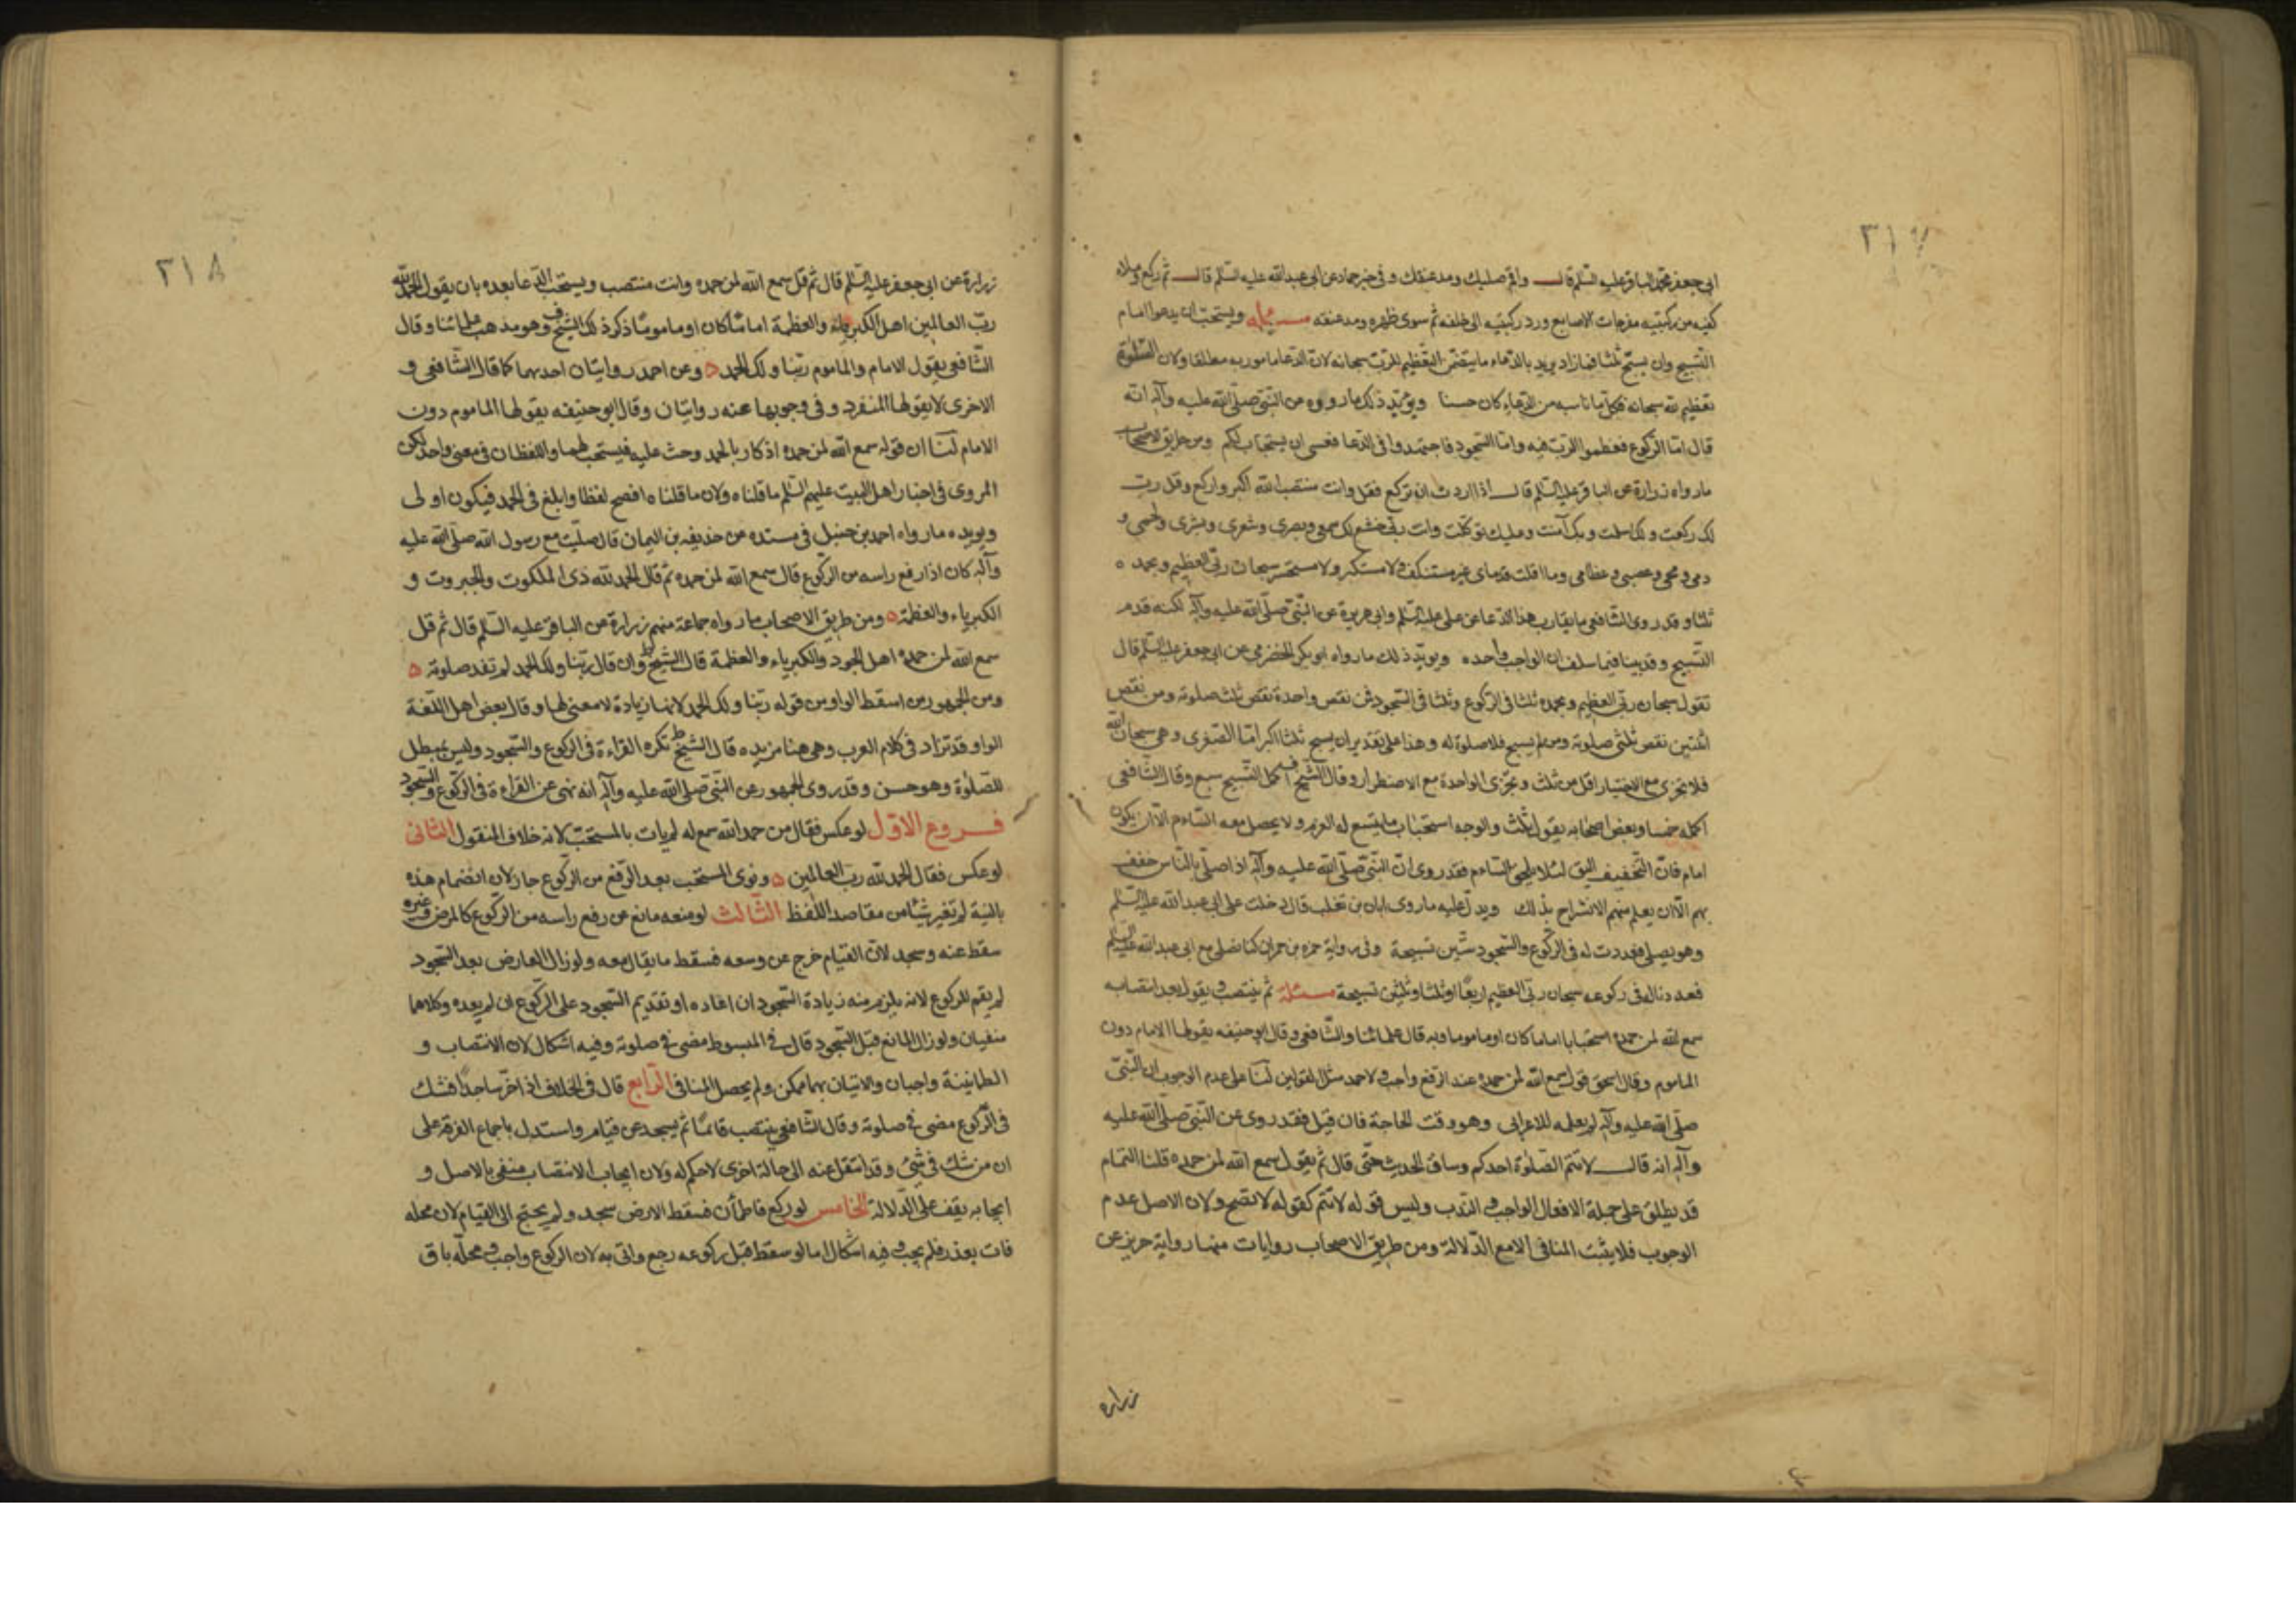 ٣١٧
ابى جعفر محمد الباقر عليه السّلم قال واقم صلبك ومد عنقك وفى خبر حماد عن ابى عبد الله عليه السّلم قال ثم ركع وملاء
كفيه من ركبتيه مفرجات الاصابع ورد ركبتيه الى خلفه ثم سوى ظهره ومد عنقه مسئله ويستحبّ ان يدعوا امام
التّسبيح وان يسبّح ثلثا فما زاد يريد بالدّعاء ما يتضمّن التّعظيم للرّبّ سبحانه لانّ الدّعا مامور به مطلقا ولان الصّلوة
تعظيم لله سبحانه فكلّما ناسبه من الدّعاء كان حسنا ويؤيّد ذلك ما رووه عن النّبىّ صلّى الله عليه وآله انّه
قال امّا الرّكوع فعظّموا الرّبّ فيه وامّا السّجود فاجتهدوا فى الدّعا فعسى ان يستجاب لكم ومن طريق الاصحاب
ما رواه زرارة عن الباقر عليه السّلم قال اذا اردت ان تركع فقل وانت منتصب الله اكبر واركع وقل ربّ
لك ركعت ولك اسلمت وبك آمنت وعليك توكّلت وانت ربّى خشع لك سمعى وبصرى وشعرى وبشرى ولحمى و
دمى ومخى وعصبى وعظامى وما اقلت قدماى غير مستنكف ولا مستكبر ولا مستحسر سبحان ربّى العظيم وبحمده
ثلثا وقد روى الشّافعى ما يقارب هذا الدّعا عن على عليه السّلم وابى هريرة عن النّبىّ صلّى الله عليه وآله لكنه قدم
التّسبيح وقد بينا فيما سلف ان الواجب واحده ويويّد ذلك ما رواه ابو بكر الحضرمى عن ابى جعفر عليه السّلم قال
تقول سبحان ربّى العظيم وبحمده ثلثا فى الركوع وثلثا فى السّجود فمن نقص واحدة نقص ثلث صلوته ومن نقص
اثنتين نقص ثلثى صلوته ومن لم يسبح فلا صلوة له وهذا على تقدير ان يسبح ثلثا اكبر امّا الصّغرى وهى سبحان الله
فلا تجزى مع الاختيار اقل من ثلث وتجزى الواحدة مع الاضطرار وقال الشّيخ اكمل التّسبيح سبع وقال الشّافعى
اكمله خمسا وبعض اصحابه يقول ثلث والوجه استحباب ما يتسع له العزم ولا يحصل معه السّاءم الّا ان يكون
امام فانّ التّخفيف اليق لئلا يلحق السّاءم فقد روى انّ النّبىّ صلّى الله عليه وآله اذا صلّى بالنّاس خفف
بهم الّا ان يعلم منهم الانشراح بذلك ويدلّ عليه ما روى ابان بن تغلب قال دخلت على ابى عبد الله عليه السّلم
وهو يصلى فعددت له فى الركوع والسّجود ستّين تسبيحة وفى رواية حمزه بن حمران كنا نصلى مع ابى عبد الله عليه السّلم
فعددنا له فى ركوعه سبحان ربّى العظيم اربعًا او ثلثا وثلثين تسبيحة مسئلة ثم ينتصب ويقول بعد انتصابه
سمع الله لمن حمده استحبابا اماما كان او ماموما وبه قال علمائنا والشّافعى وقال ابو حنيفه يقولها الامام دون
الماموم وقال اسحق قول سمع الله لمن حمده عند الرّفع واجب ولاحمد مثل القولين لنا على عدم الوجوب ان النّبىّ
صلّى الله عليه وآله لم يعلمه للاعرابى وهو وقت الحاجة فان قيل فقد روى عن النّبىّ صلّى الله عليه
وآله انه قال لا تتمّ الصّلوة احدكم وساق الحديث حتّى قال ثم يقول سمع الله لمن حمده قلنا التمام
قد يطلق على جملة الافعال الواجب والنّدب وليس قوله لا تتم كقوله لا تصح ولان الاصل عدم
الوجوب فلا يثبت المنافى الا مع الدّلالة ومن طريق الاصحاب روايات منها رواية حريز عن
زراره
٣١٨
زرارة عن ابى جعفر عليه السّلم قال ثم قل سمع الله لمن حمده وانت منتصب ويستحبّ الدّعا بعده بان يقول الحمد لله
ربّ العالمين اهل الكبرياء والعظمة امامًا كان او مامومًا ذكر ذلك الشّيخ وهو مذهب علمائنا وقال
الشّافعى يقول الامام والماموم ربّنا ولك الحمد ۵ وعن احمد روايتان احديهما كما قال الشّافعى و
الاخرى لا يقولها المنفرد وفى وجوبها عنه روايتان وقال ابو حنيفه يقولها الماموم دون
الامام لنا ان قوله سمع الله لمن حمده اذكار بالحمد وحث عليه فيستحب لهما واللفظان فى معنى واحد لكن
المروى فى اخبار اهل البيت عليهم السّلم ما قلناه ولان ما قلناه افصح لفظا وابلغ فى الحمد فيكون اولى
ويويده ما رواه احمد بن حنبل فى مسنده عن حذيفه بن اليمان قال صلّيت مع رسول الله صلّى الله عليه
وآله كان اذا رفع راسه من الرّكوع قال سمع الله لمن حمده ثم قال الحمد لله ذى الملكوت والجبروت و
الكبرياء والعظمة ۵ ومن طريق الاصحاب ما رواه جماعة منهم زرارة عن الباقر عليه السّلم قال ثم قل
سمع الله لمن حمده اهل الجود والكبرياء والعظمة قال الشّيخ وان قال ربّنا ولك الحمد لم تفسد صلوته ۵
ومن الجمهور من اسقط الواو من قوله ربّنا ولك الحمد لانها زيادة لا معنى لها وقال بعض اهل اللّغة
الواو قد تزاد فى كلام العرب وهى هنا مزيده قال الشّيخ تكره القراءة فى الركوع والسّجود وليس بمبطل
للصّلوة وهو حسن وقد روى الجمهور عن النّبىّ صلّى الله عليه وآله انه نهى عن القراءة فى الركوع والسّجود
فروع الاوّل لو عكس فقال من حمد الله سمع له لم يات بالمستحبّ لانه خلاف المنقول الثانى
لو عكس فقال الحمد لله ربّ العالمين ۵ ونوى المستحب بعد الرّفع من الرّكوع جاز لان انضمام هذه
بالنيّة لم تغير شيئا من مقاصد اللّفظ الثّالث لو منعه مانع عن رفع راسه من الرّكوع كالمرض وغيره
سقط عنه وسجد لانّ القيام خرج عن وسعه فسقط ما يقال معه ولو زال العارض بعد السّجود
لم يقم للركوع لانه يلزم منه زيادة السّجود ان اعاده او تقديم السّجود على الرّكوع ان لم يعده وكلاهما
منفيان ولو زال المانع قبل السّجود قال فى المبسوط مضى فى صلوته وفيه اشكال لان الانتصاب و
الطمانينة واجبان والاتيان بهما ممكن ولم يحصل المنافى الرّابع قال فى الخلاف اذا خرّ ساجدًا فشك
فى الرّكوع مضى فى صلوته وقال الشّافعى ينتصب قائمًا ثم يسجد عن قيام واستدل باجماع الفرقة على
ان من شك فى شئ وقد انتقل عنه الى حالة اخرى لا حكم له ولان ايجاب الانتصاب منفى بالاصل و
ايجابه يقف على الدّلالة الخامس لو ركع فاطمأن فسقط الى الارض سجد ولم يحتج الى القيام لان محله
فات بعذر فلم يجب وفيه اشكال اما لو سقط قبل ركوعه رجع واتى به لان الركوع واجب ومحلّه باق